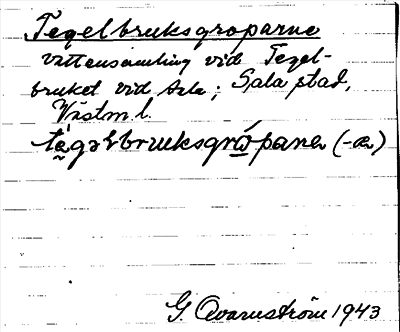 Tegelbruksgroparne
vattensamling vid Tegel-
bruket vid Sala; Sala stad,
Västm l.
tégəlbruksgrópane (-æ)
G. Qvarnström 1943